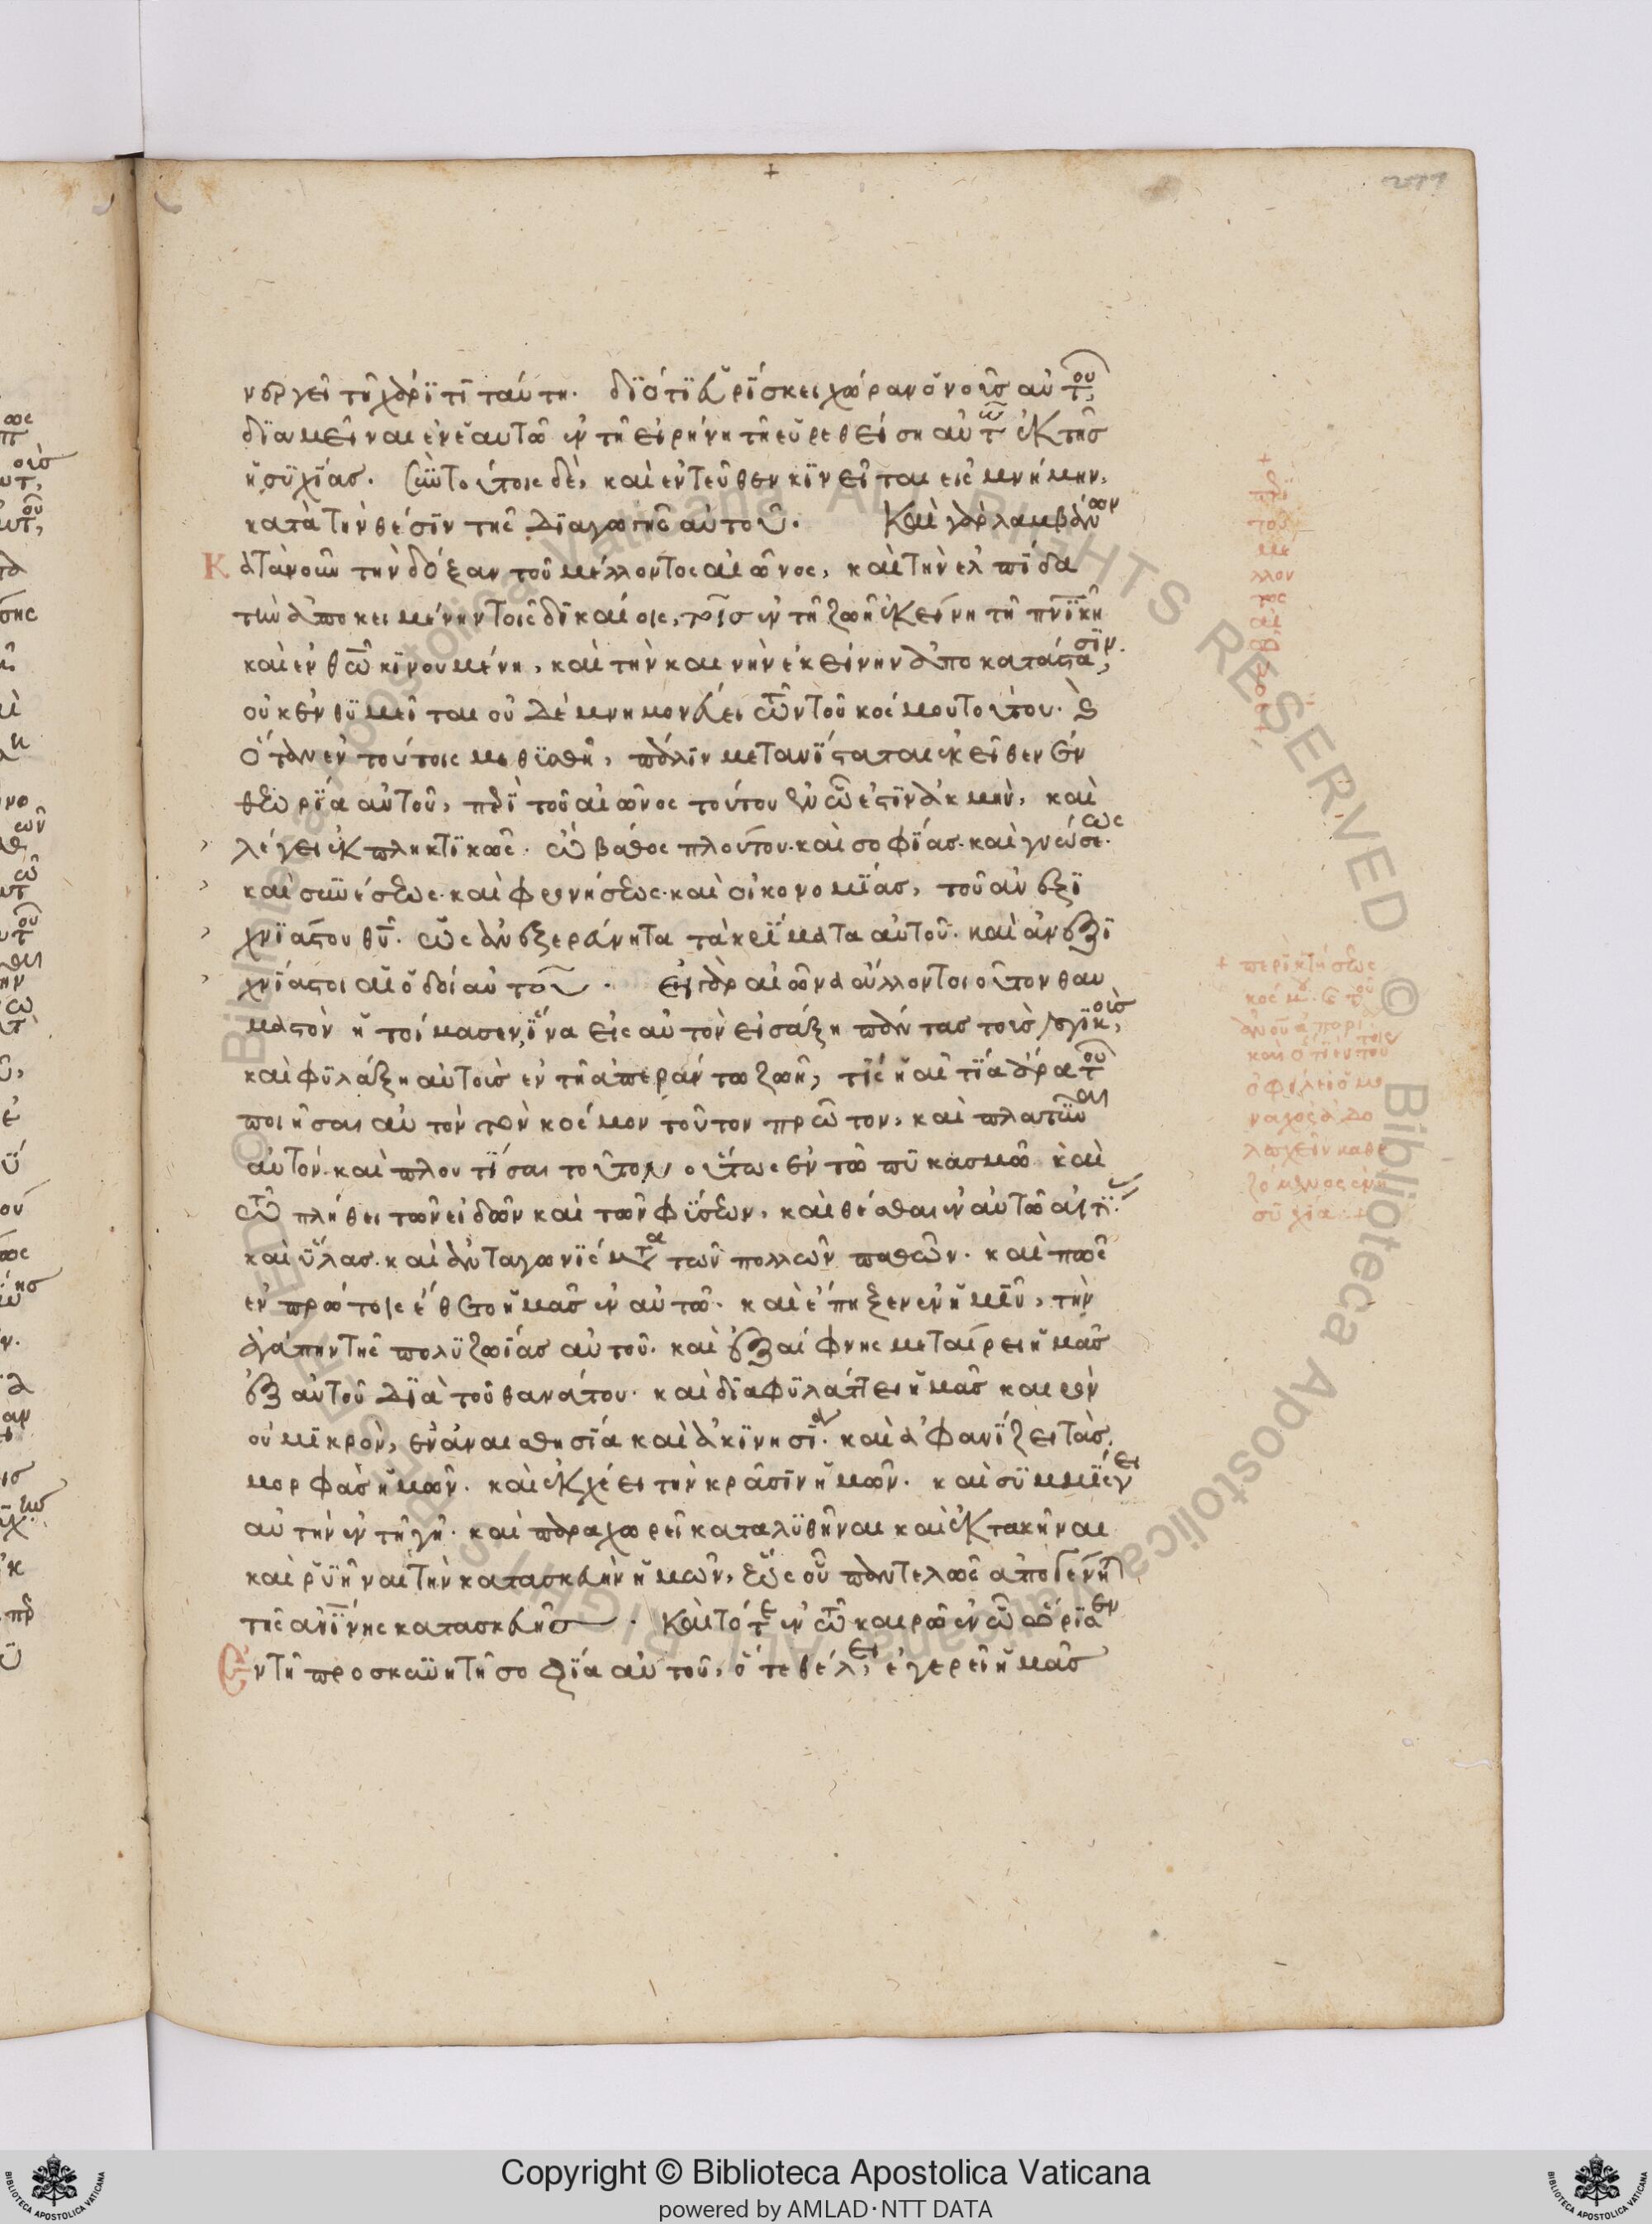 νεργεῖ τῇ χάριτι ταύτῃ. διότι εὑρίσκει χώραν ὁ νοῦς αὐτοῦ,
διαμεῖναι ἐν ἑαυτῷ ἐν τῇ εἰρήνῃ τῇ εὑρεθείσῃ αὐτῷ ἐκ τῆς
ἡσυχίας. σὺν τούτοις δὲ, καὶ ἐντεῦθεν κινεῖται εἰς μνήμην,
κατὰ τὴν θέσιν τῆς διαγωγῆς αὐτοῦ. Καὶ γὰρ λαμβάνων
κατὰ νοῦν τὴν δόξαν τοῦ μέλλοντος αἰῶνος, καὶ τὴν ἐλπίδα
τὴν ἀποκειμένην τοῖς δικαίοις, τοῖς ἐν τῇ ζωῇ ἐκείνῃ τῇ πνικῇ
καὶ ἐν θῶ κινουμένῃ, καὶ τὴν καινὴν ἐκείνην ἀποκατάστασιν,
οὐκ ἐνθυμεῖται οὐδὲ μνημονεύει τῶν τοῦ κόσμου τούτου. καὶ
ὅταν ἐν τούτοις μεθυσθῇ, πάλιν μετανίσταται ἐκεῖθεν ἐν
θεωρίᾳ αὐτοῦ, περὶ τοῦ αἰῶνος τούτου ἐν ᾧ ἐστὶν ἀκμὴν, καὶ
λέγει ἐκπληκτικῶς. ὦ βάθος πλούτου. καὶ σοφίας. καὶ γνώσεως.
καὶ συνέσεως. καὶ φρονήσεως. καὶ οἰκονομίας, τοῦ ἀνεξι
χνιάστου θυ. ὡς ἀνεξερεύνητα τὰ κρίματα αὐτοῦ. καὶ ἀνεξι
χνίαστοι αἱ ὁδοὶ αὐτοῦ. Εἰ γὰρ αἰῶνα ἄλλον τοιοῦτον θαυ
μαστὸν ἡτοίμασεν, ἵνα εἰς αὐτὸν εἰσάξῃ πάντας τοὺς λογικοὺς,
καὶ φυλάξῃ αὐτοὺς ἐν τῇ ἀπεράντῳ ζωῇ, τίς ἡ αἰτία ἄρα τοῦ
ποιῆσαι αὐτὸν τὸν κόσμον τοῦτον πρῶτον, καὶ πλατῦναι
αὐτόν. καὶ πλουτίσαι τοῦτον, οὕτως ἐν τῷ πυκασμῷ καὶ
τῷ πλήθει τῶν εἰδῶν καὶ τῶν φύσεων, καὶ θέσθαι ἐν αὐτῷ αἰτίας.
καὶ ὕλας. καὶ ἀνταγωνίσματα τῶν πολλῶν παθῶν. καὶ πῶς
ἐν πρώτοις ἔθετο ἡμᾶς ἐν αὐτῷ. καὶ ἔπηξεν ἐν ἡμῖν, τὴν
ἀγάπην τῆς πολυζωΐας αὐτοῦ. καὶ ἐξαίφνης μεταίρει ἡμᾶς
ἐξ αὐτοῦ διὰ τοῦ θανάτου. καὶ διαφυλάττει ἡμᾶς καιρὸν
οὐ μικρὸν, ἐν ἀναισθησίᾳ καὶ ἀκινησίᾳ. καὶ ἀφανίζει τὰς
μορφὰς ἡμῶν. καὶ ἐκχέει τὴν κρᾶσιν ἡμῶν. καὶ συμμίσγει
αὐτὴν ἐν τῇ γῇ. καὶ παραχωρεῖ καταλυθῆναι καὶ ἐκτακῆναι
καὶ ῥυῆναι τὴν κατασκευὴν ἡμῶν, ἕως οὗ παντελῶς
τῆς ἀνίνης κατασκευῆς. Καὶ τότε ἐν τῷ καιρῷ ἐν ᾧ ὥρισεν
ἐν τῇ προσκυνητῇ σοφίᾳ αὐτοῦ, ὅτε θέλει, ἐγερεῖ ἡμᾶς
+ περὶ τοῦ μέ
λλον
τος
αἰ
ῶ
νος
+ περὶ κτήσεως
κόσμου
καὶ ὅτι ἐν τού
ὀφείλει ὁ μο
ναχὸς ἀδο
λεσχεῖν καθε
ζόμενος ἐν ἡ
συχίᾳ
Copyright © Biblioteca Apostolica Vaticana
powered by AMLAD·NTT DATA